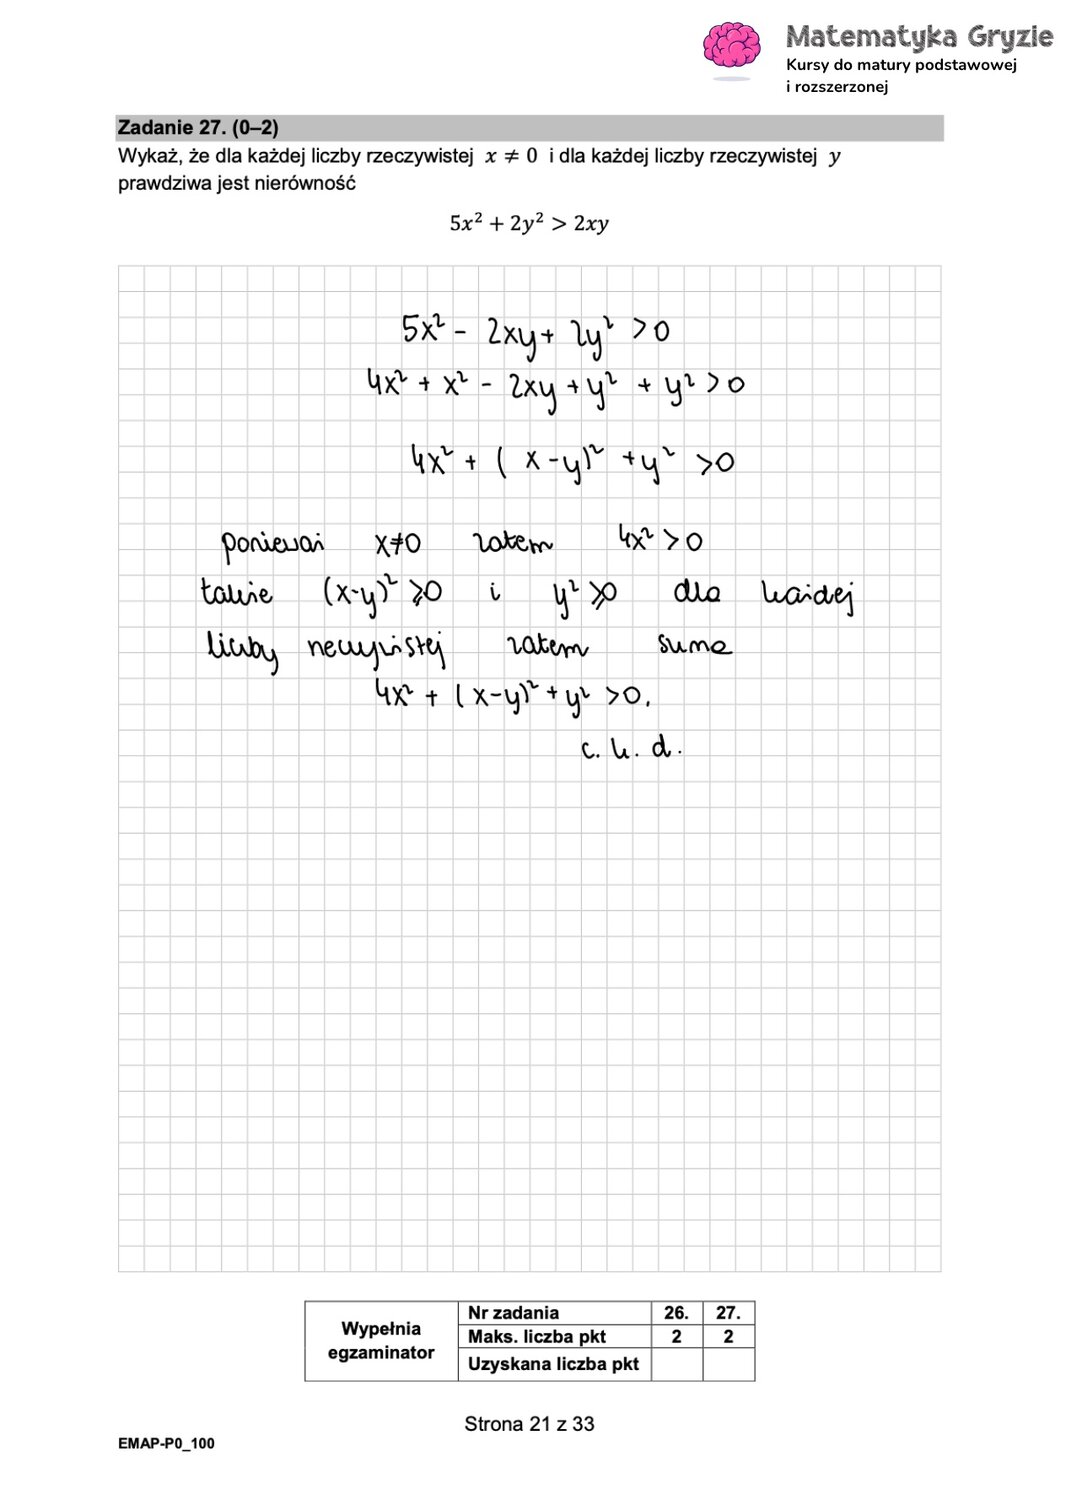 Matematyka Gryzie
Kursy do matury podstawowej
i rozszerzonej
Zadanie 27. (0–2)
Wykaż, że dla każdej liczby rzeczywistej x ≠ 0 i dla każdej liczby rzeczywistej y
prawdziwa jest nierówność
5x² + 2y² > 2xy
5x² - 2xy + 2y² > 0
4x² + x² - 2xy + y² + y² > 0
4x² + (x-y)² + y² > 0
ponieważ x≠0 zatem 4x² > 0
także (x-y)² ⩾ 0 i y² ⩾ 0 dla każdej
liczby rzeczywistej zatem suma
4x² + (x-y)² + y² > 0.
c. k. d.
Wypełnia egzaminator
Nr zadania 26. 27.
Maks. liczba pkt 2 2
Uzyskana liczba pkt
Strona 21 z 33
EMAP-P0_100